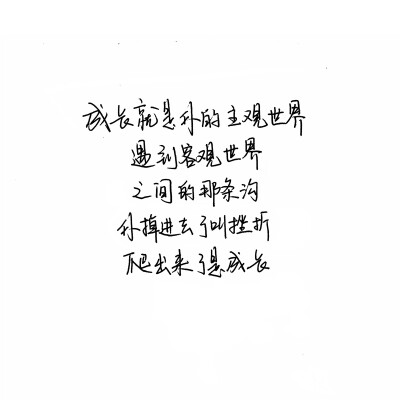 成长就是你的主观世界
遇到客观世界
之间的那条沟
你掉进去了叫挫折
爬出来了是成长